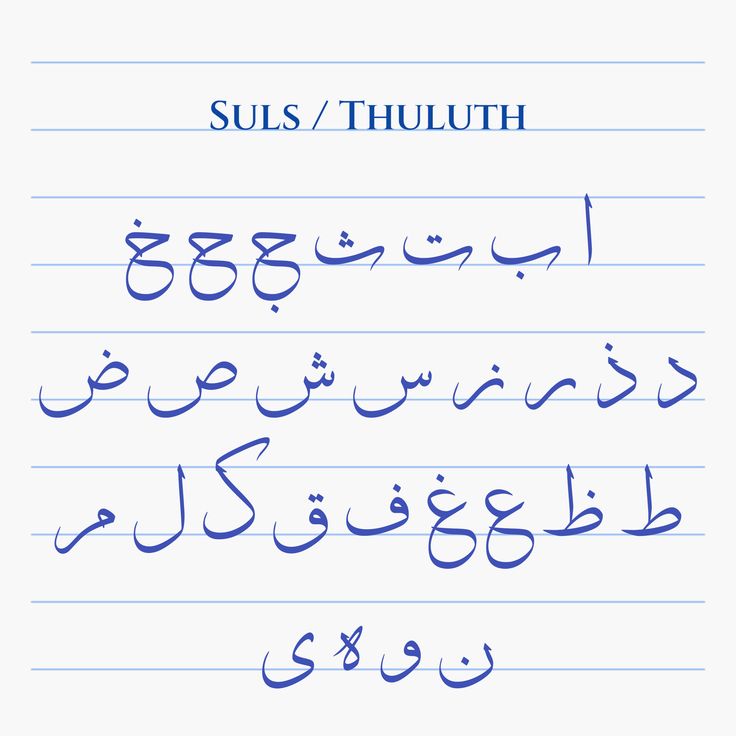 SULS / THULUTH
ا ب ت ث ج ح خ
د ذ ر ز س ش ص ض
ط ظ ع غ ف ق ک ل م
ن و ه ى